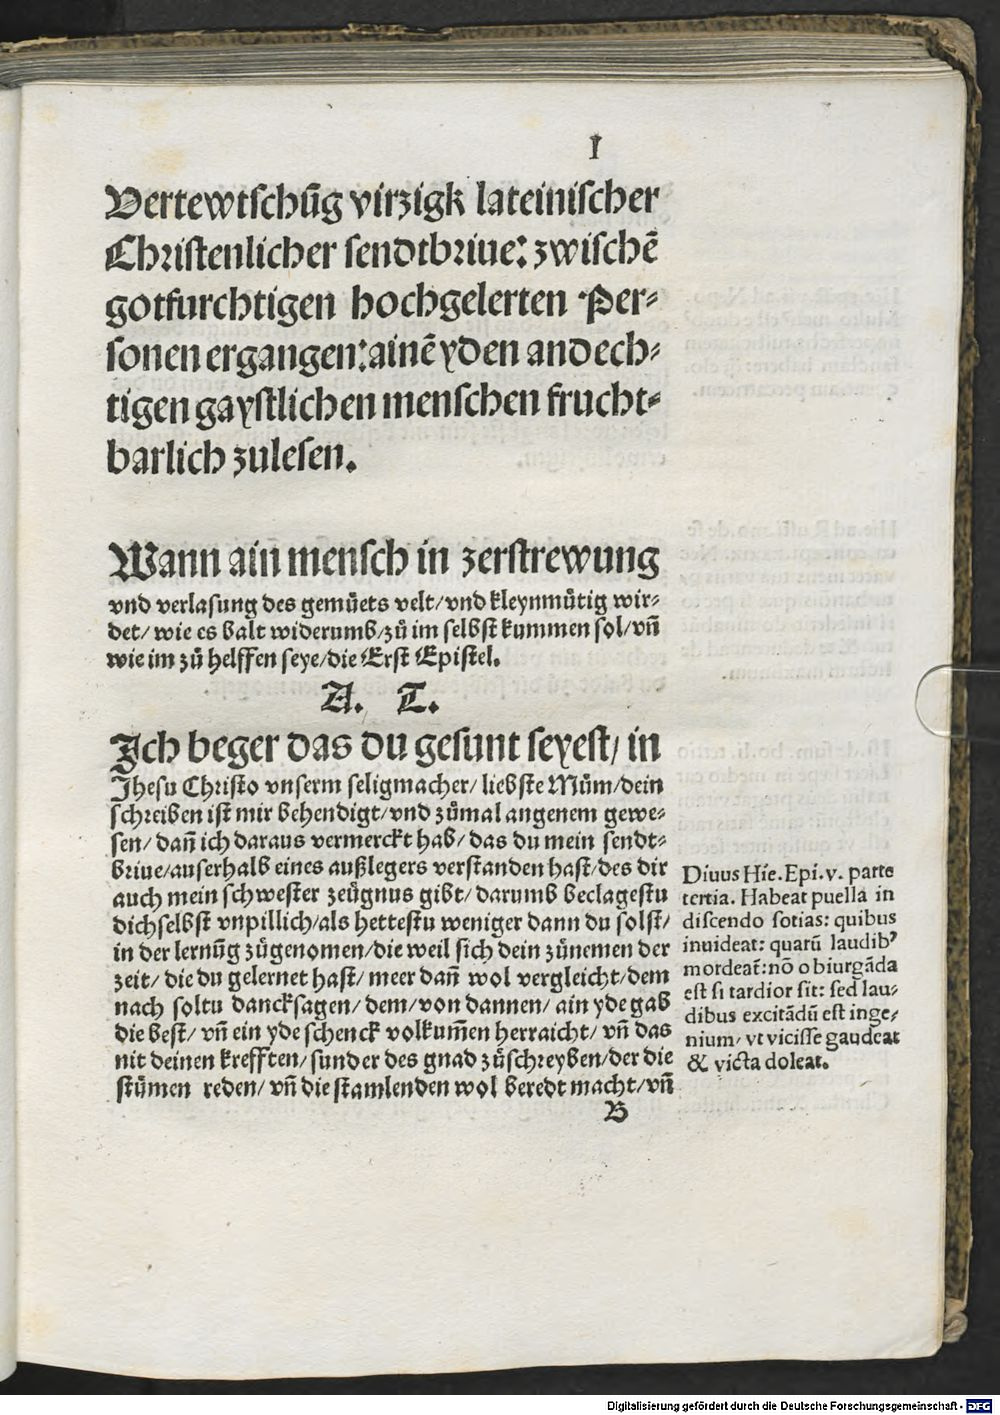 I
Vertewtschūg virzigk lateinischer
Christenlicher sendtbriue: zwischē
gotfurchtigen hochgelerten Per⸗
sonen ergangen: ainē yden andech⸗
tigen gaystlichen menschen frucht⸗
barlich zulesen.
Wann ain mensch in zerstrewung
vnd verlasung des gemüets velt/ vnd kleynmütig wir⸗
det/ wie es balt widerumb/ zů im selbst kummen sol/ vñ
wie im zů helffen seye/ die Erst Epistel.
A. T.
Ich beger das du gesunt seyest/ in
Jhesu Christo vnserm seligmacher/ liebste Mům/ dein
schreiben ist mir behendigt/ vnd zůmal angenem gewe⸗
sen/ dañ ich daraus vermerckt hab/ das du mein sendt⸗
briue/ auserhalb eines außlegers verstanden hast/ des dir
auch mein schwester zeügnus gibt/ darumb beclagestu
dich selbst vnpillich/ als hettestu weniger dann du solst/
in der lernūg zůgenomen/ die weil sich dein zůnemen der
zeit/ die du gelernet hast/ meer dañ wol vergleicht/ dem
nach soltu dancksagen/ dem/ von dannen/ ain yde gab
die best/ vñ ein yde schenck volkum̄en herraicht/ vñ das
nit deinen krefften/ sunder des gnad zůschreyben/ der die
stům̄en reden/ vñ die stamlenden wol beredt macht/ vñ
B
Diuus Hie. Epi. v. parte
tertia. Habeat puella in
discendo sotias: quibus
inuideat: quarū laudibꝰ
mordeat̄: nō obiurgāda
est si tardior sit: sed lau⸗
dibus excitādū est inge⸗
nium/ vt vicisse gaudeat
& victa doleat.
Digitalisierung gefördert durch die Deutsche Forschungsgemeinschaft - DFG